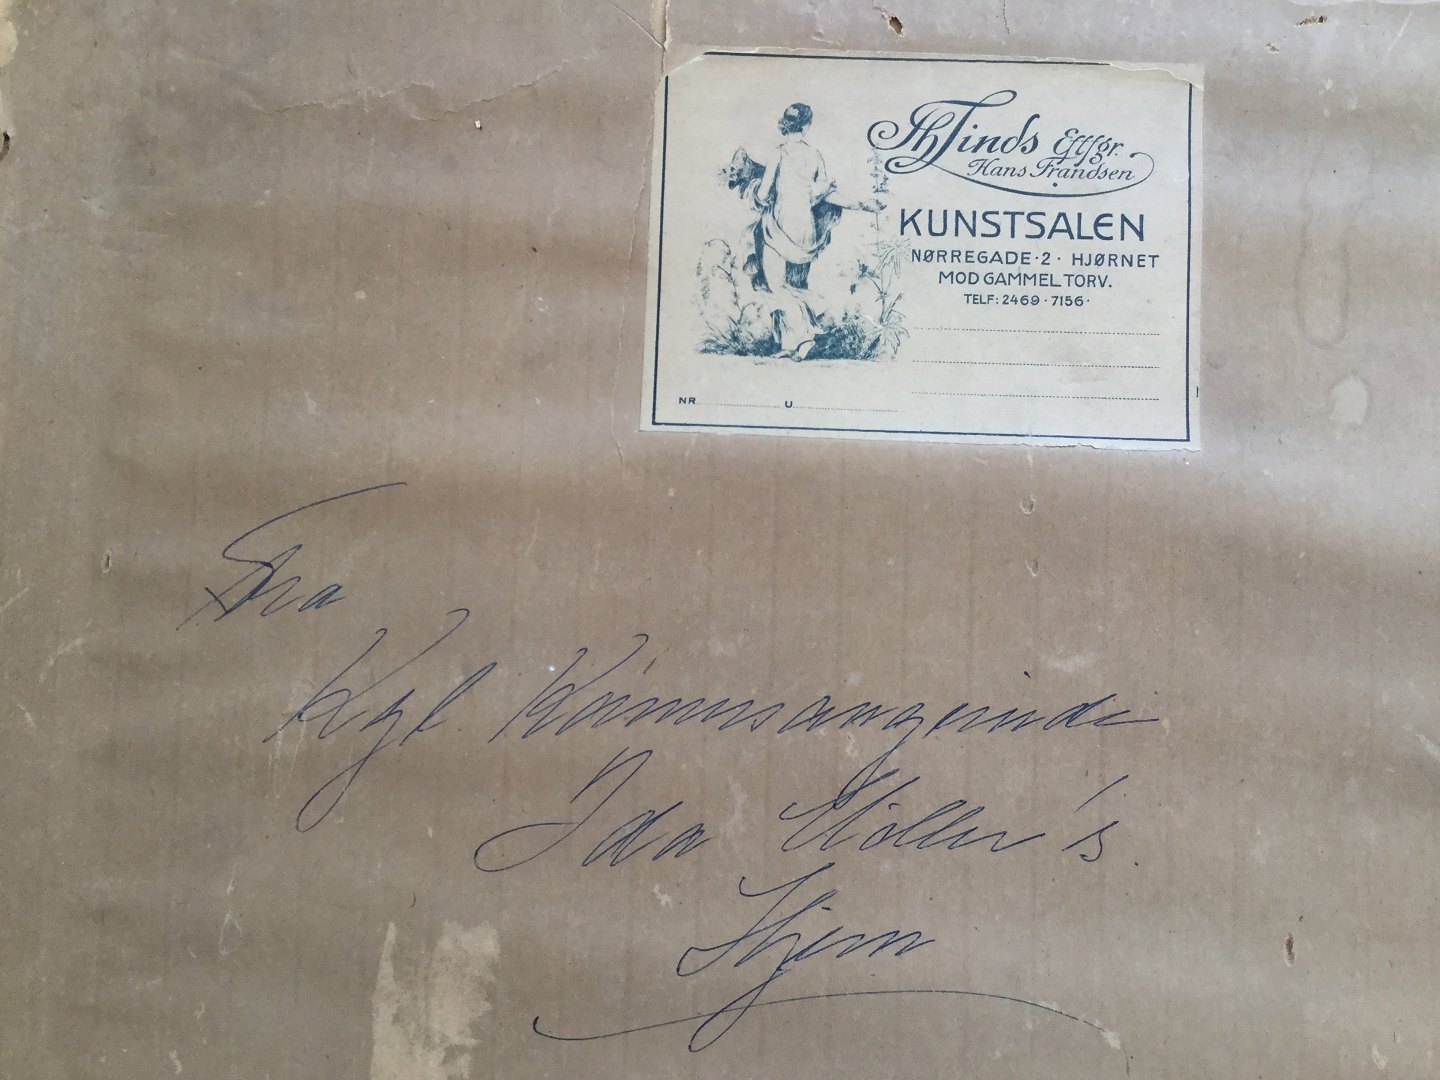 Th Finds Eftfgr.
Hans Frandsen
KUNSTSALEN
NØRREGADE · 2 · HJØRNET
MOD GAMMEL TORV.
TELF: 2469 · 7156 ·
NR. U
Fra
Kgl. Kammersangerinde
Ida Møller's
Hjem